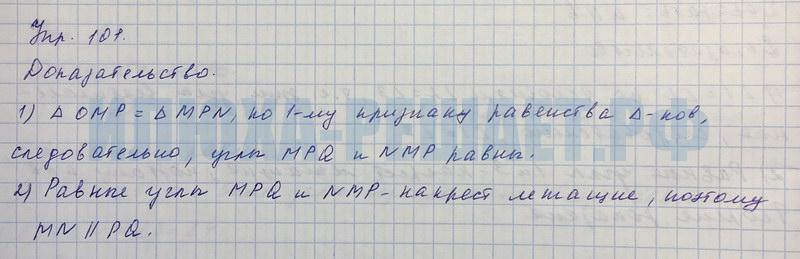 Упр. 101.
Доказательство.
1) Δ OMP = Δ MPN, по 1-му признаку равенства Δ-ков,
следовательно, углы MPQ и NMP равны.
2) Равные углы MPQ и NMP - накрест лежащие, поэтому
MN || PQ.
НЕУКА-РЕШАЕТ.РФ